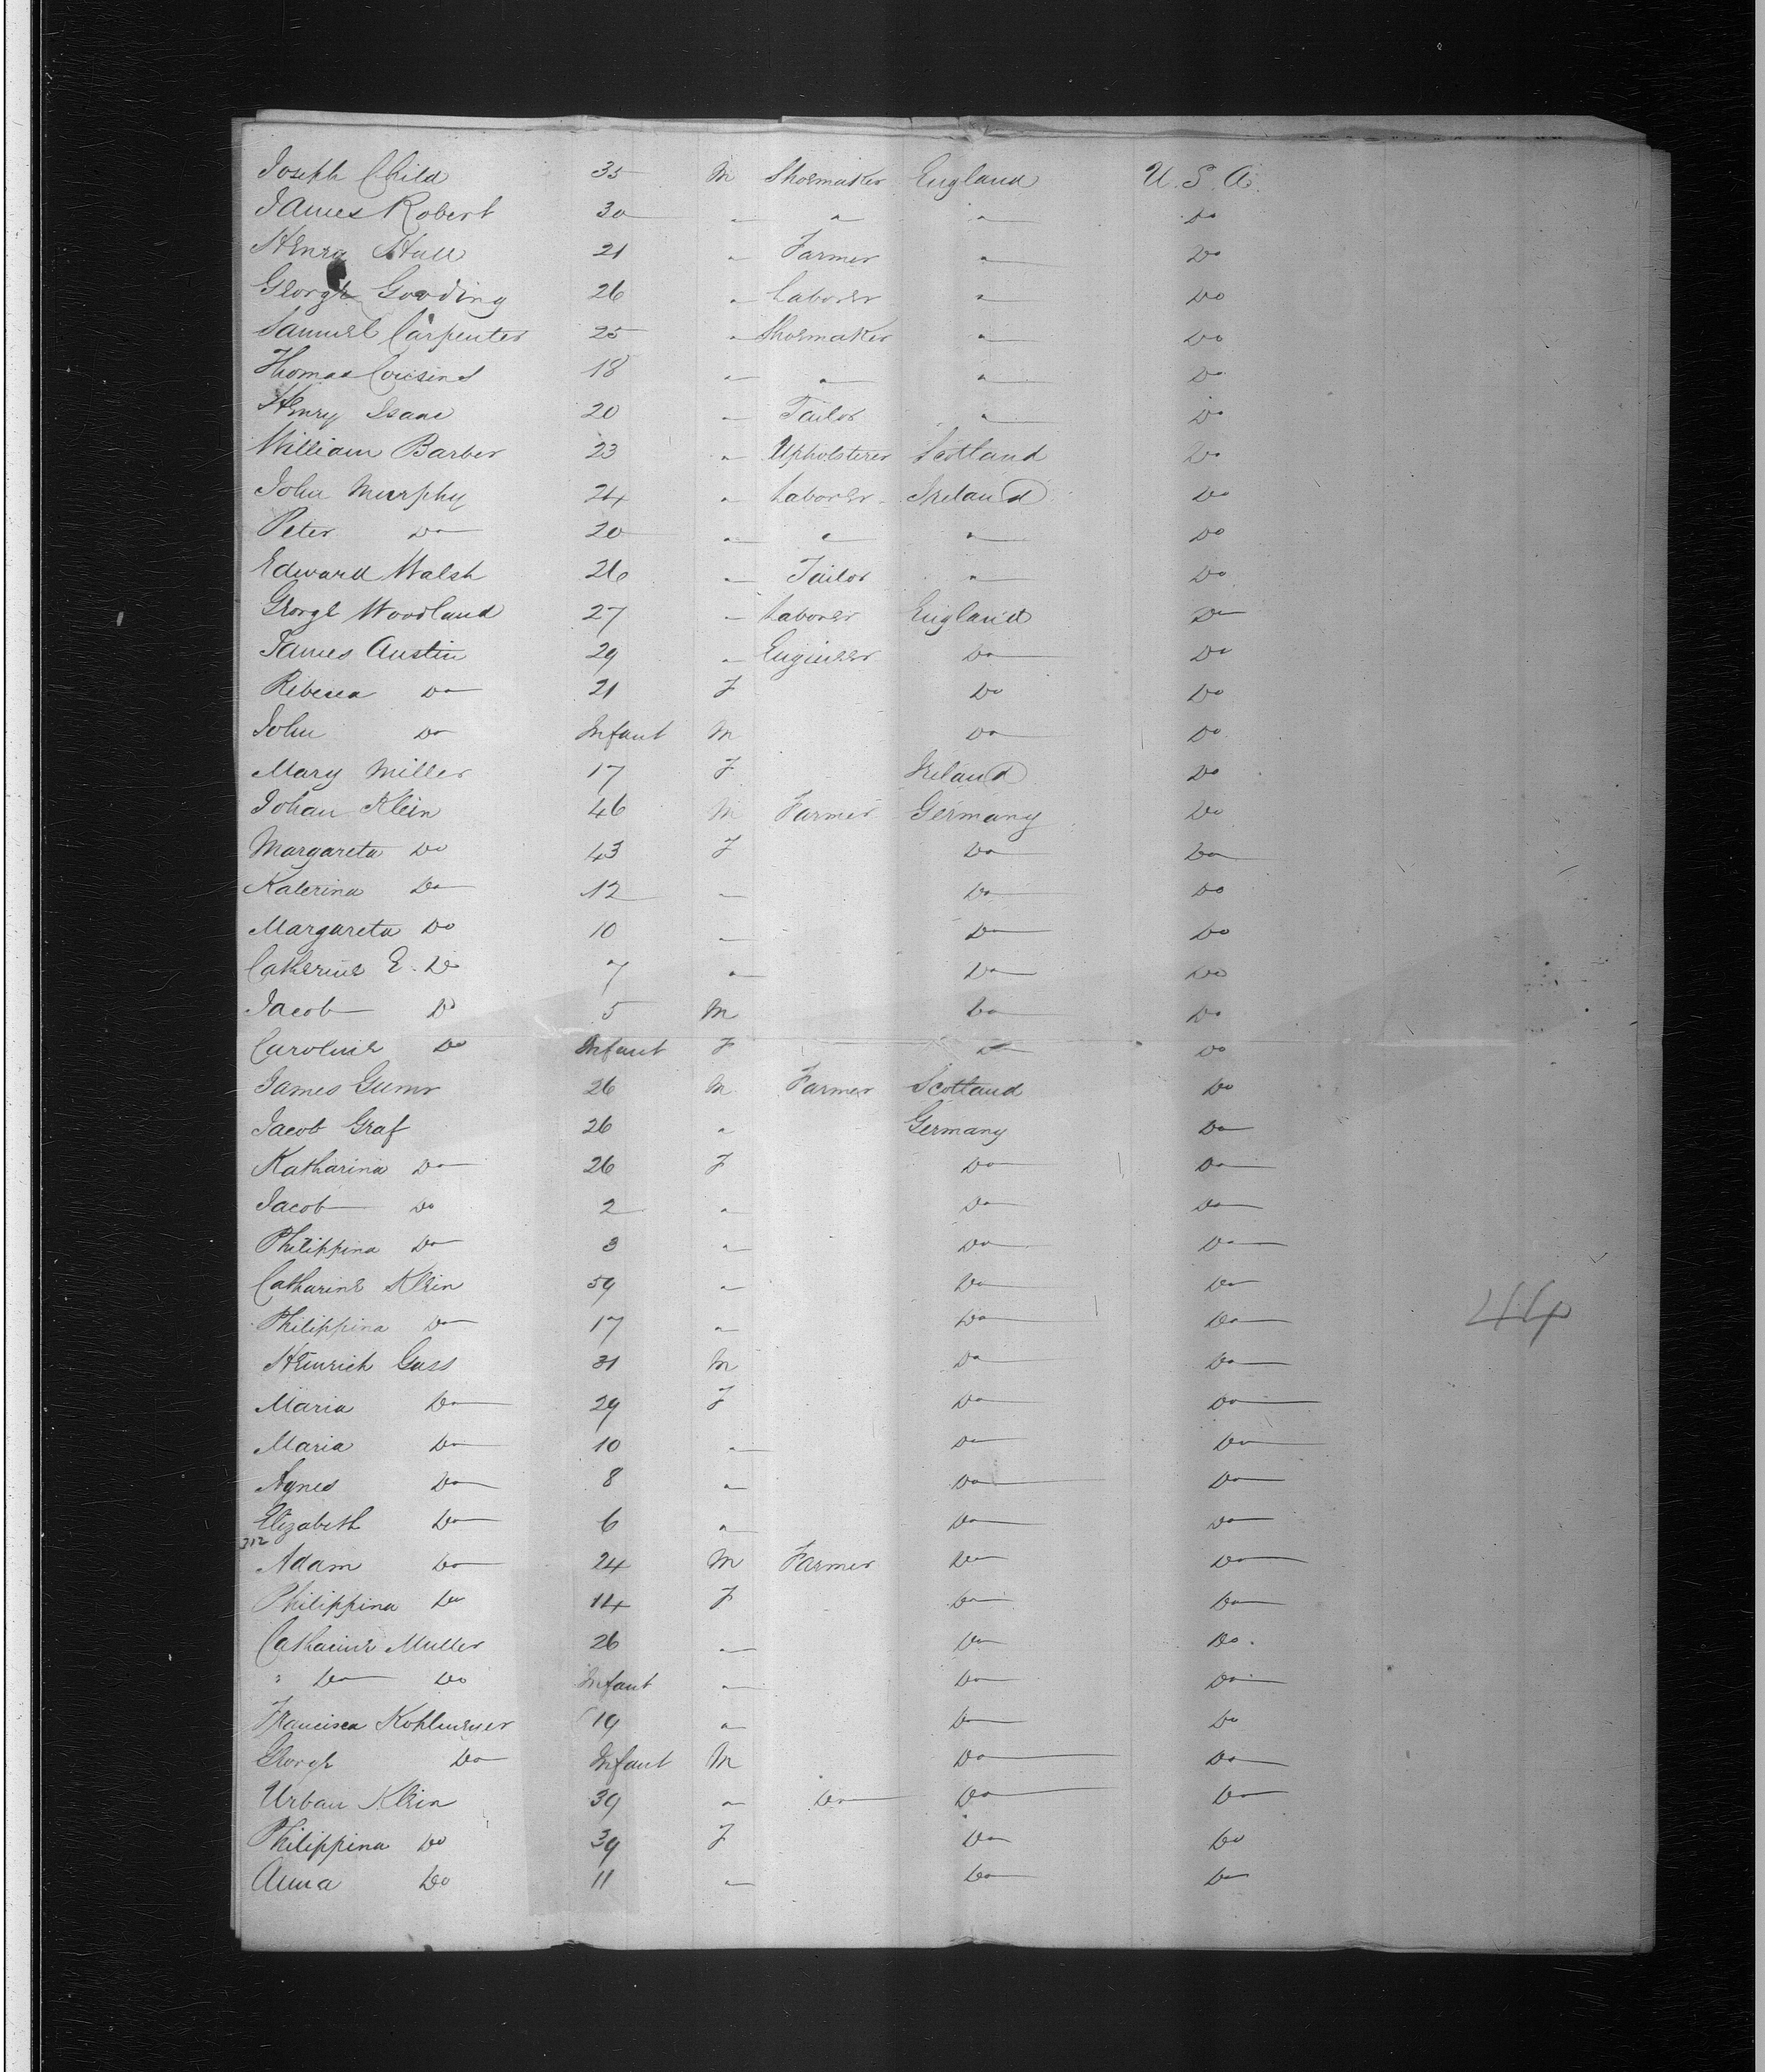 Joseph Child 35 M Shoemaker England U.S.A.
James Robert 30 " " " Do
Henry Hull 21 " Farmer " Do
George Gooding 26 " Laborer " Do
Samuel Carpenter 25 " Shoemaker " Do
Thomas Cousins 18 " " " Do
Henry Isaac 20 " Tailor " Do
William Barber 23 " Upholsterer Scotland Do
John Murphy 24 " Laborer Ireland Do
Peter Do 20 " " " Do
Edward Walsh 26 " Tailor " Do
George Woodland 27 " Laborer England Do
James Austin 29 " Engineer Do Do
Rebecca Do 21 F Do Do
John Do Infant M Do Do
Mary Miller 17 F Ireland Do
Johan Klein 46 M Farmer Germany Do
Margareta Do 43 F Do Do
Katerina Do 12 " Do Do
Margareta Do 10 " Do Do
Catherine E. Do 7 " Do Do
Jacob Do 5 M Do Do
Caroline Do Infant F Do Do
James 26 M Farmer Scotland Do
Jacob Graf 26 " Germany Do
Katharina Do 26 F Do Do
Jacob Do 2 " Do Do
Philippina Do 3 " Do Do
Catharine Klein 59 " Do Do
Philippina Do 17 " Do Do
44
Heinrich Gass 31 M Do Do
Maria Do 29 F Do Do
Maria Do 10 " Do Do
Agnes Do 8 " Do Do
Elizabeth Do 6 " Do Do
312
Adam Do 24 M Farmer Do Do
Philippina Do 14 F Do Do
Catharine Muller 26 " Do Do.
" Do Do Infant " Do Do
Francisca 19 " Do Do
George Do Infant M Do Do
Urban Klein 39 " Do Do Do
Philippina Do 39 F Do Do
Anna Do 11 " Do Do